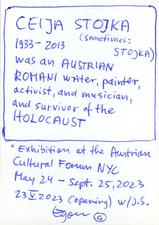 CEIJA STOJKA
(sometimes:
1933-2013 STOJKA)
was an AUSTRIAN
ROMANI writer, painter,
activist, and musician,
and survivor of the
HOLOCAUST
"Exhibition at the Austrian
Cultural Forum NYC
May 24 - Sept. 25, 2023
23 V 2023 (opening) w/J.S.
G